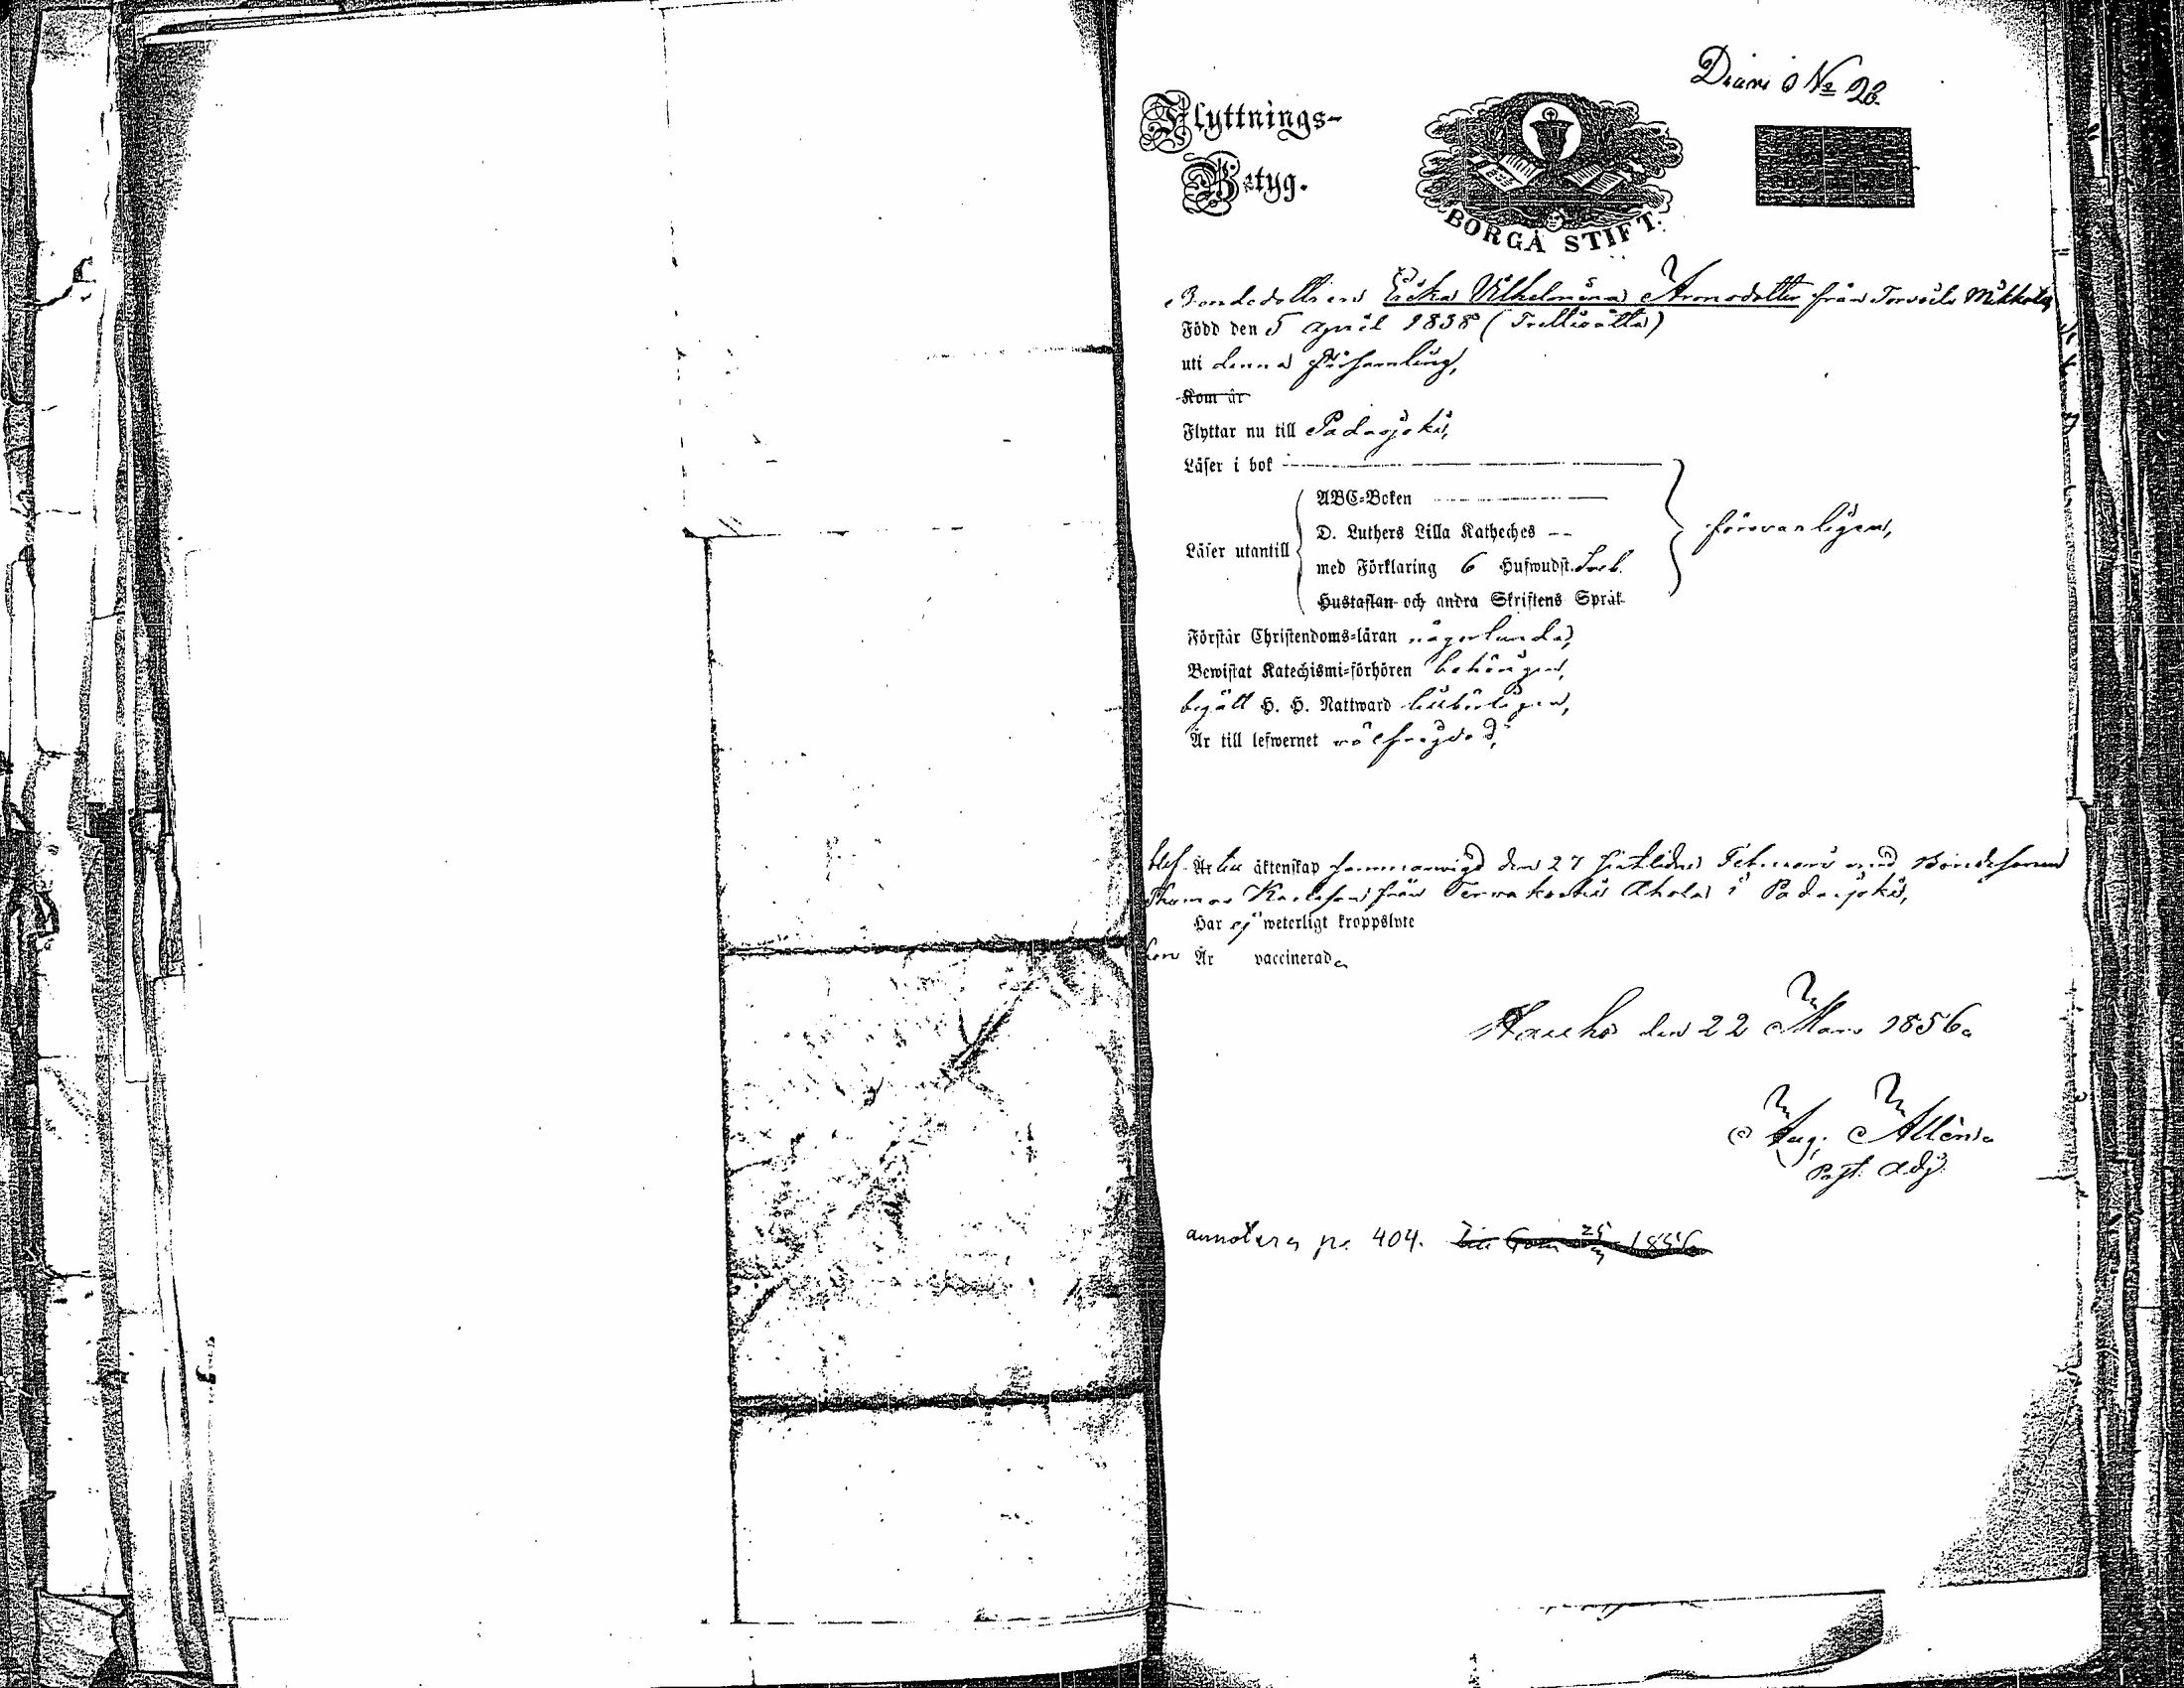 Diari No 26.
Flyttnings-
Betyg.
BORGÅ STIFT.
Bondedottren Erika Wilhelmina Aronsdotter från Torvoila Mikkola
Född den 5 April 1838 (Trettioåtta)
uti denna Församling,
Kom år
Flyttar nu till Padasjoki,
Läser i bok
ABC-Boken
D. Luthers Lilla Katheches
Läser utantill
med Förklaring 6 Hufwudst.
Hustaflan och andra Skriftens Språk
försvarligen,
Förstår Christendoms-läran någorlunda,
Bewistat Katechismi-förhören behörigen,
begått H. H. Nattward tillbörligen,
Är till lefwernet välfrägdad,
blef Är till äktenskap sammanvigd den 27 sistlidne Februari med Bondesonen
Thomas Karlsson från Terwakoski Ahola i Padasjoki,
Har ej weterligt kroppslyte
hon Är vaccinerad.
Hauho den 22 Mars 1856.
Aug. Allén.
Past. Adj.
annoteras pa. 404.